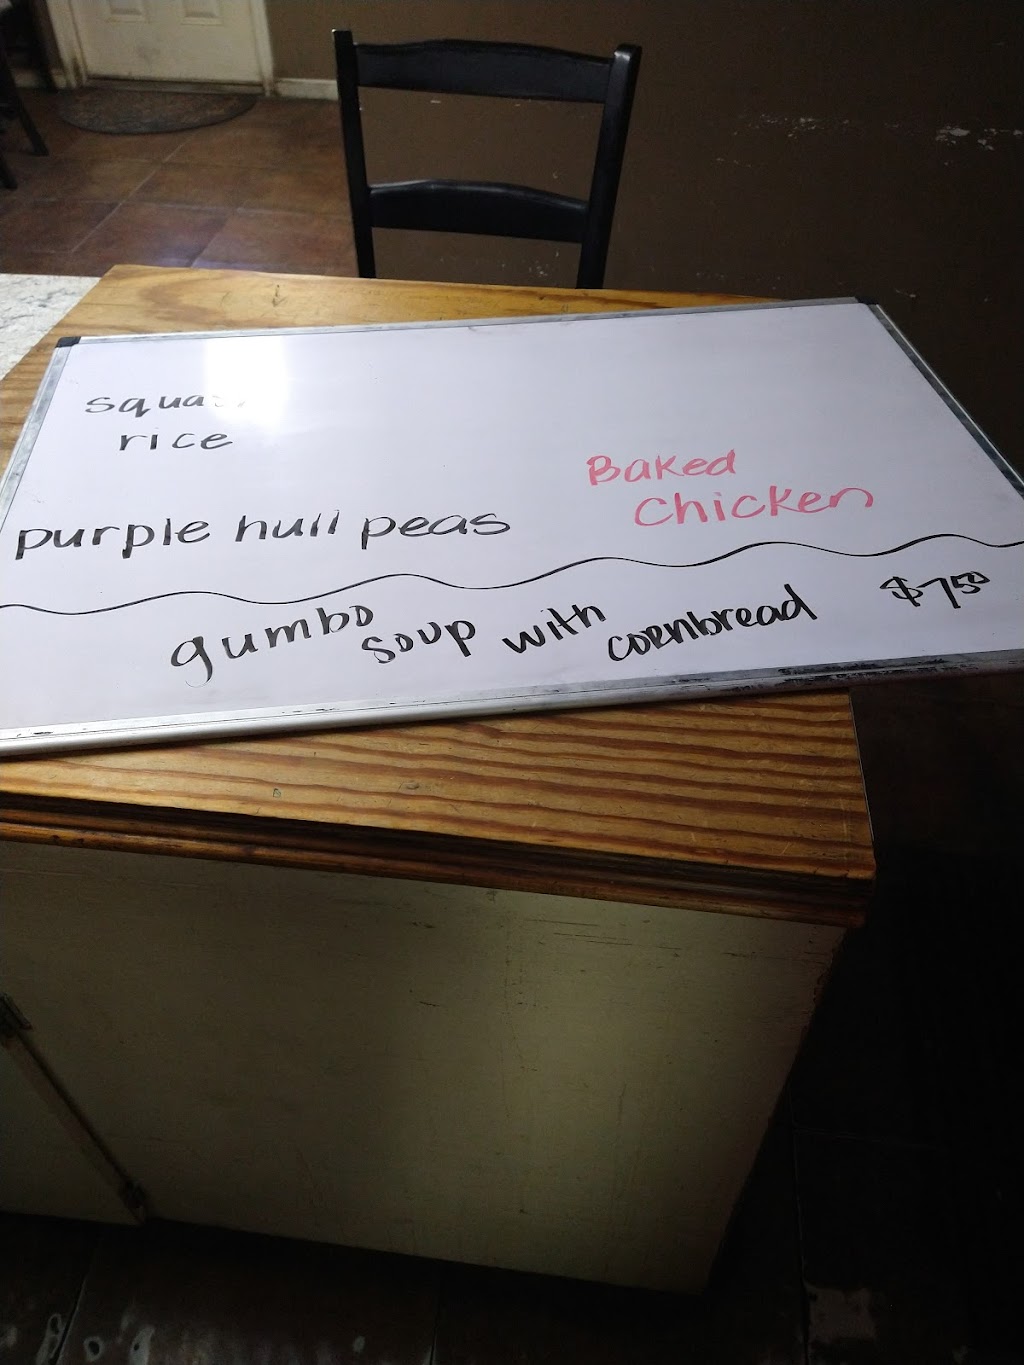 rice
Baked
Chicken
purple hull peas
gumbo soup with cornbread $7.50